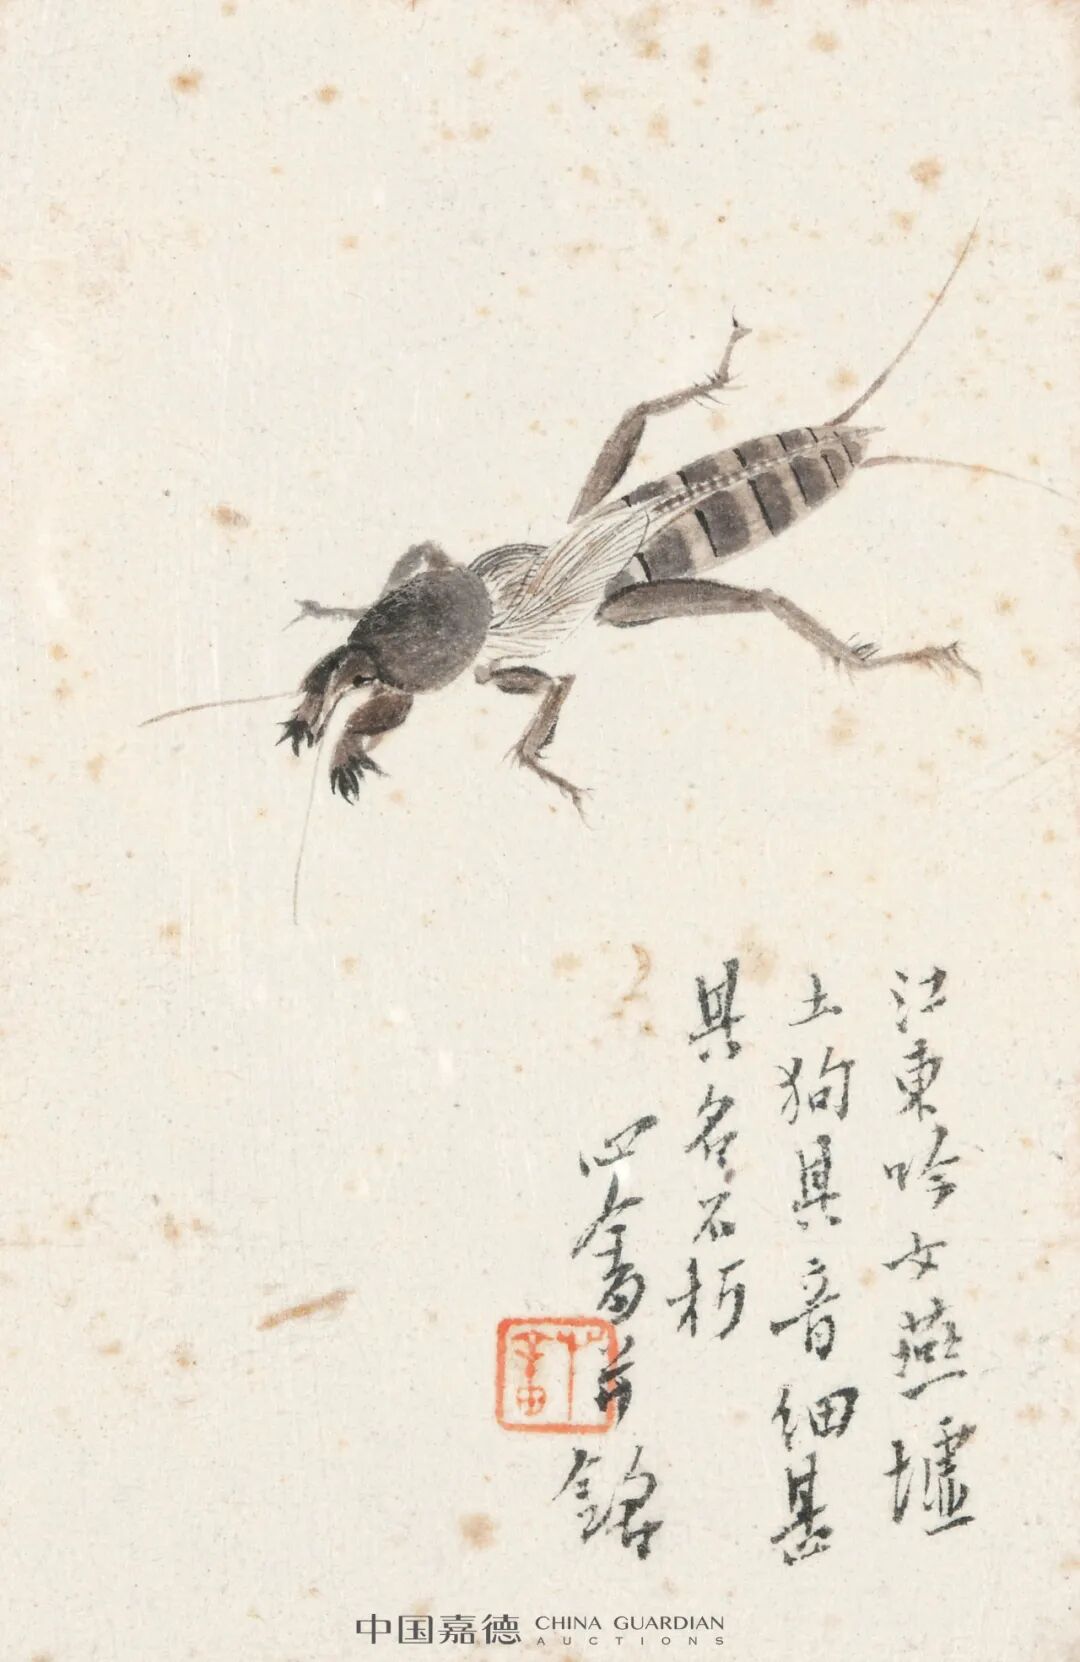 江東吟女燕墟
土狗其音細甚
其名石析
心畬并銘
中国嘉德 CHINA GUARDIAN
AUCTIONS